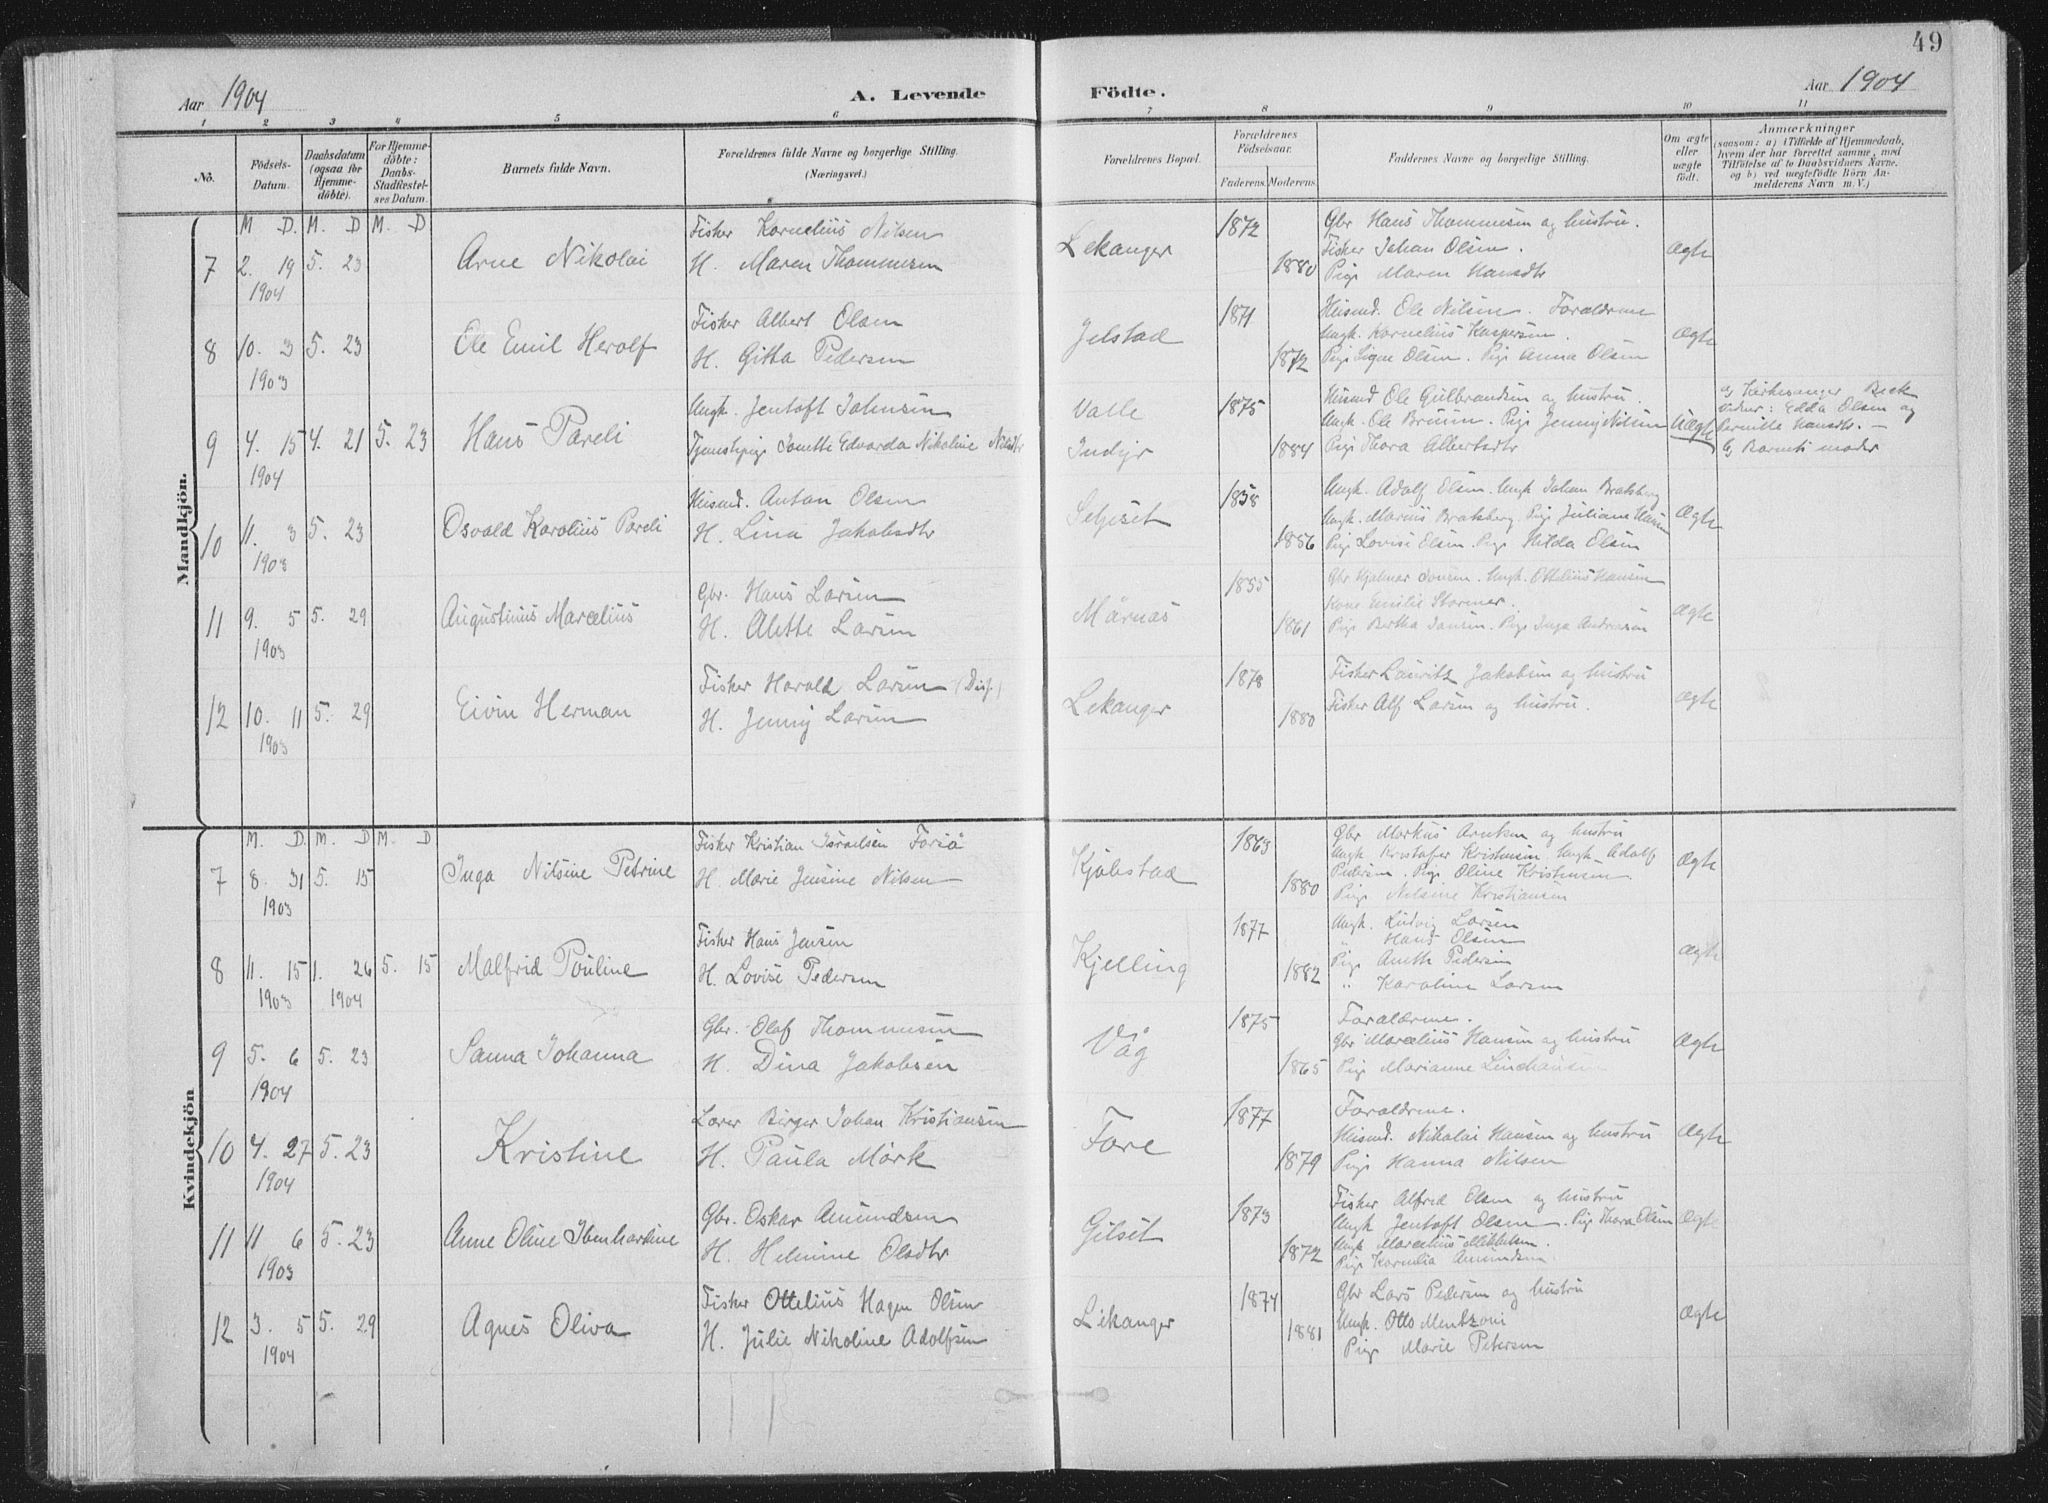 49
Aar 1904
A. Levende Födte.
Aar 1904
1 2 3 4 5 6 7 8 9 10 11
No.
Födsels-Datum.
Daabsdatum (ogsaa for Hjemmedöbte).
For Hjemmedöbte: Daabs-Stadfæstelses Datum.
Barnets fulde Navn.
Forældrenes fulde Navne og borgerlige Stilling. (Næringsvei.)
Forældrenes Bopæl.
Forældrenes Födselsaar.
Faderens. Moderens.
Faddernes Navne og borgerlige Stilling.
Om ægte eller uægte født.
Anmærkninger
(saasom: a) i Tilfælde af Hjemmedaab, hvem der har forrettet samme, med Tilföielse af to Daabsvidners Navne. og b) ved uegtefödte Börn Anmelderens Navn m. V.)
Mandkjön.
M D. M. D M. D
Fisker Kornelius Nilsen 1872 Gbr Hans Thommesen og hustru.
7 2. 19 5. 23 Arne Nikolai H. Maren Thommesen Lekanger 1880 Fisker Johan Olsen. Ægte
1904 Pige Maren Hansdtr
Fisker Albert Olsen 1871 Husmd. Ole Nilsen. Forældrene
8 10. 3 5. 23 Ole Emil Herolf H. Gitta Pedersen Jelstad 1872 Ungk. Kornelius Kaspersen. Ægte
1903 Pige Signe Olsen. Pige Anna Olsen
Ungk. Jentoft Johnsen Valle 1875 Husmd Ole Gulbrandsen og hustru. a) Kirkesanger Beck
9 4. 15 4. 21 5. 23 Hans Pareli Tjenstepige Jonette Edvarda Nikoline Nilsdtr Indyr 1884 Ungk. Ole Bruun. Pige Jenny Nilsen Uægte Vidner: Edda Olsen og
1904 Pige Thora Albertsdtr Pernille Hansdtr. —
b) Barnets moder
Husmd. Anton Olsen 1858 Ungk. Adolf Olsen. Ungk Johan Bratsberg
10 11. 3 5. 23 Osvald Karolius Pareli H. Lina Jakobsdtr Selsset 1856 Ungk. Marius Bratsberg. Pige Juliane Hansen Ægte
1903 Pige Lovise Olsen. Pige Hilda Olsen
Gbr. Hans Larsen 1855 Gbr Hjalmar Jensen. Ungk. Ottelius Hansen
11 9. 5 5. 29 Augustinus Marcelius H. Alette Larsen Mårnæs 1861 Kone Emilie Stormer. Ægte
1903 Pige Bertha Jansen. Pige Inga Andreasen
Fisker Harald Larsen (Diss.) 1878 Fisker Lauritz Jakobsen og hustru
12 10. 11 5. 29 Eivin Herman H. Jenny Larsen Lekanger 1880 Fisker Alf Larsen og hustru. Ægte
1903
Kvindekjön
M. D. M. D M. D
Fisker Kristian Israelsen Forså 1863 Gbr Markus Arntsen og hustru
7 8. 31 5. 15 Inga Nilsine Petrine H. Marie Jensine Nilsen Kjøbstad 1880 Ungk Kristofer Kristensen. Ungk. Adolf Ægte
1903 Pedersen. Pige Oline Kristensen.
Pige Nilsine Kristiansen
Fisker Hans Jensen 1877 Ungk. Ludvig Larsen
8 11. 15 1. 26 5. 15 Malfrid Pouline H. Lovise Pedersen Kjelling 1882 " Hans Olsen Ægte
1903 1904 Pige Aneth Pedersen
" Karoline Larsen
Gbr. Olaf Thommesen 1875 Forældrene.
9 5. 6 5. 23 Sanna Johanna H. Dina Jakobsen Våg 1865 Gbr Marcelius Hansen og hustru Ægte
1904 Pige Marianne Lindhausen
Lærer Birger Johan Kristiansen 1877 Forældrene.
10 4. 27 5. 23 Kristine H. Paula Mörk Fore 1879 Husmd. Nikolai Hansen og hustru Ægte
1904 Pige Hanna Nilsen
Gbr. Oskar Amundsen 1873 Fisker Alfred Olsen og hustru
11 11 6 5. 23 Anne Oline Ibenhartine H. Helmine Olsdtr Gilset 1872 Ungk Jentoft Olsen. Pige Thora Olsen Ægte
1903 Ungk Marcelius Mikkelsen.
Pige Kornelia Amundsen
Fisker Ottelius Hagen Olsen 1874 Gbr Lars Pedersen og hustru
12 3. 5 5. 29 Agnes Oliva H. Julie Nikoline Adolfsen Lekanger 1881 Ungk. Otto Mentzoni Ægte
1904 Pige Marie Petersen